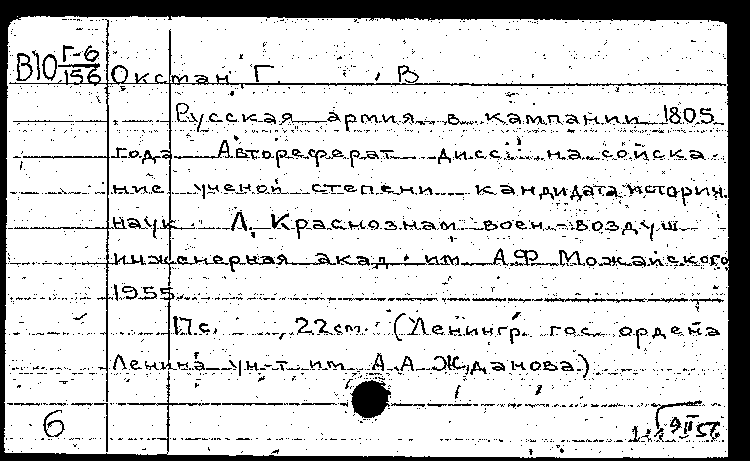 В10 Г-6/156 Окстан, Г. В
Русская армия в кампании 1805
года Автореферат дисс. на соиска
ние ученой степени кандидата историч.
наук. Л. Краснознам воен.-воздуш
инженерная акад. им. А.Ф Можайского
1955
17с. , 22см. (Ленингр. гос. ордена
Ленина ун-т им А.А Жданова)
6